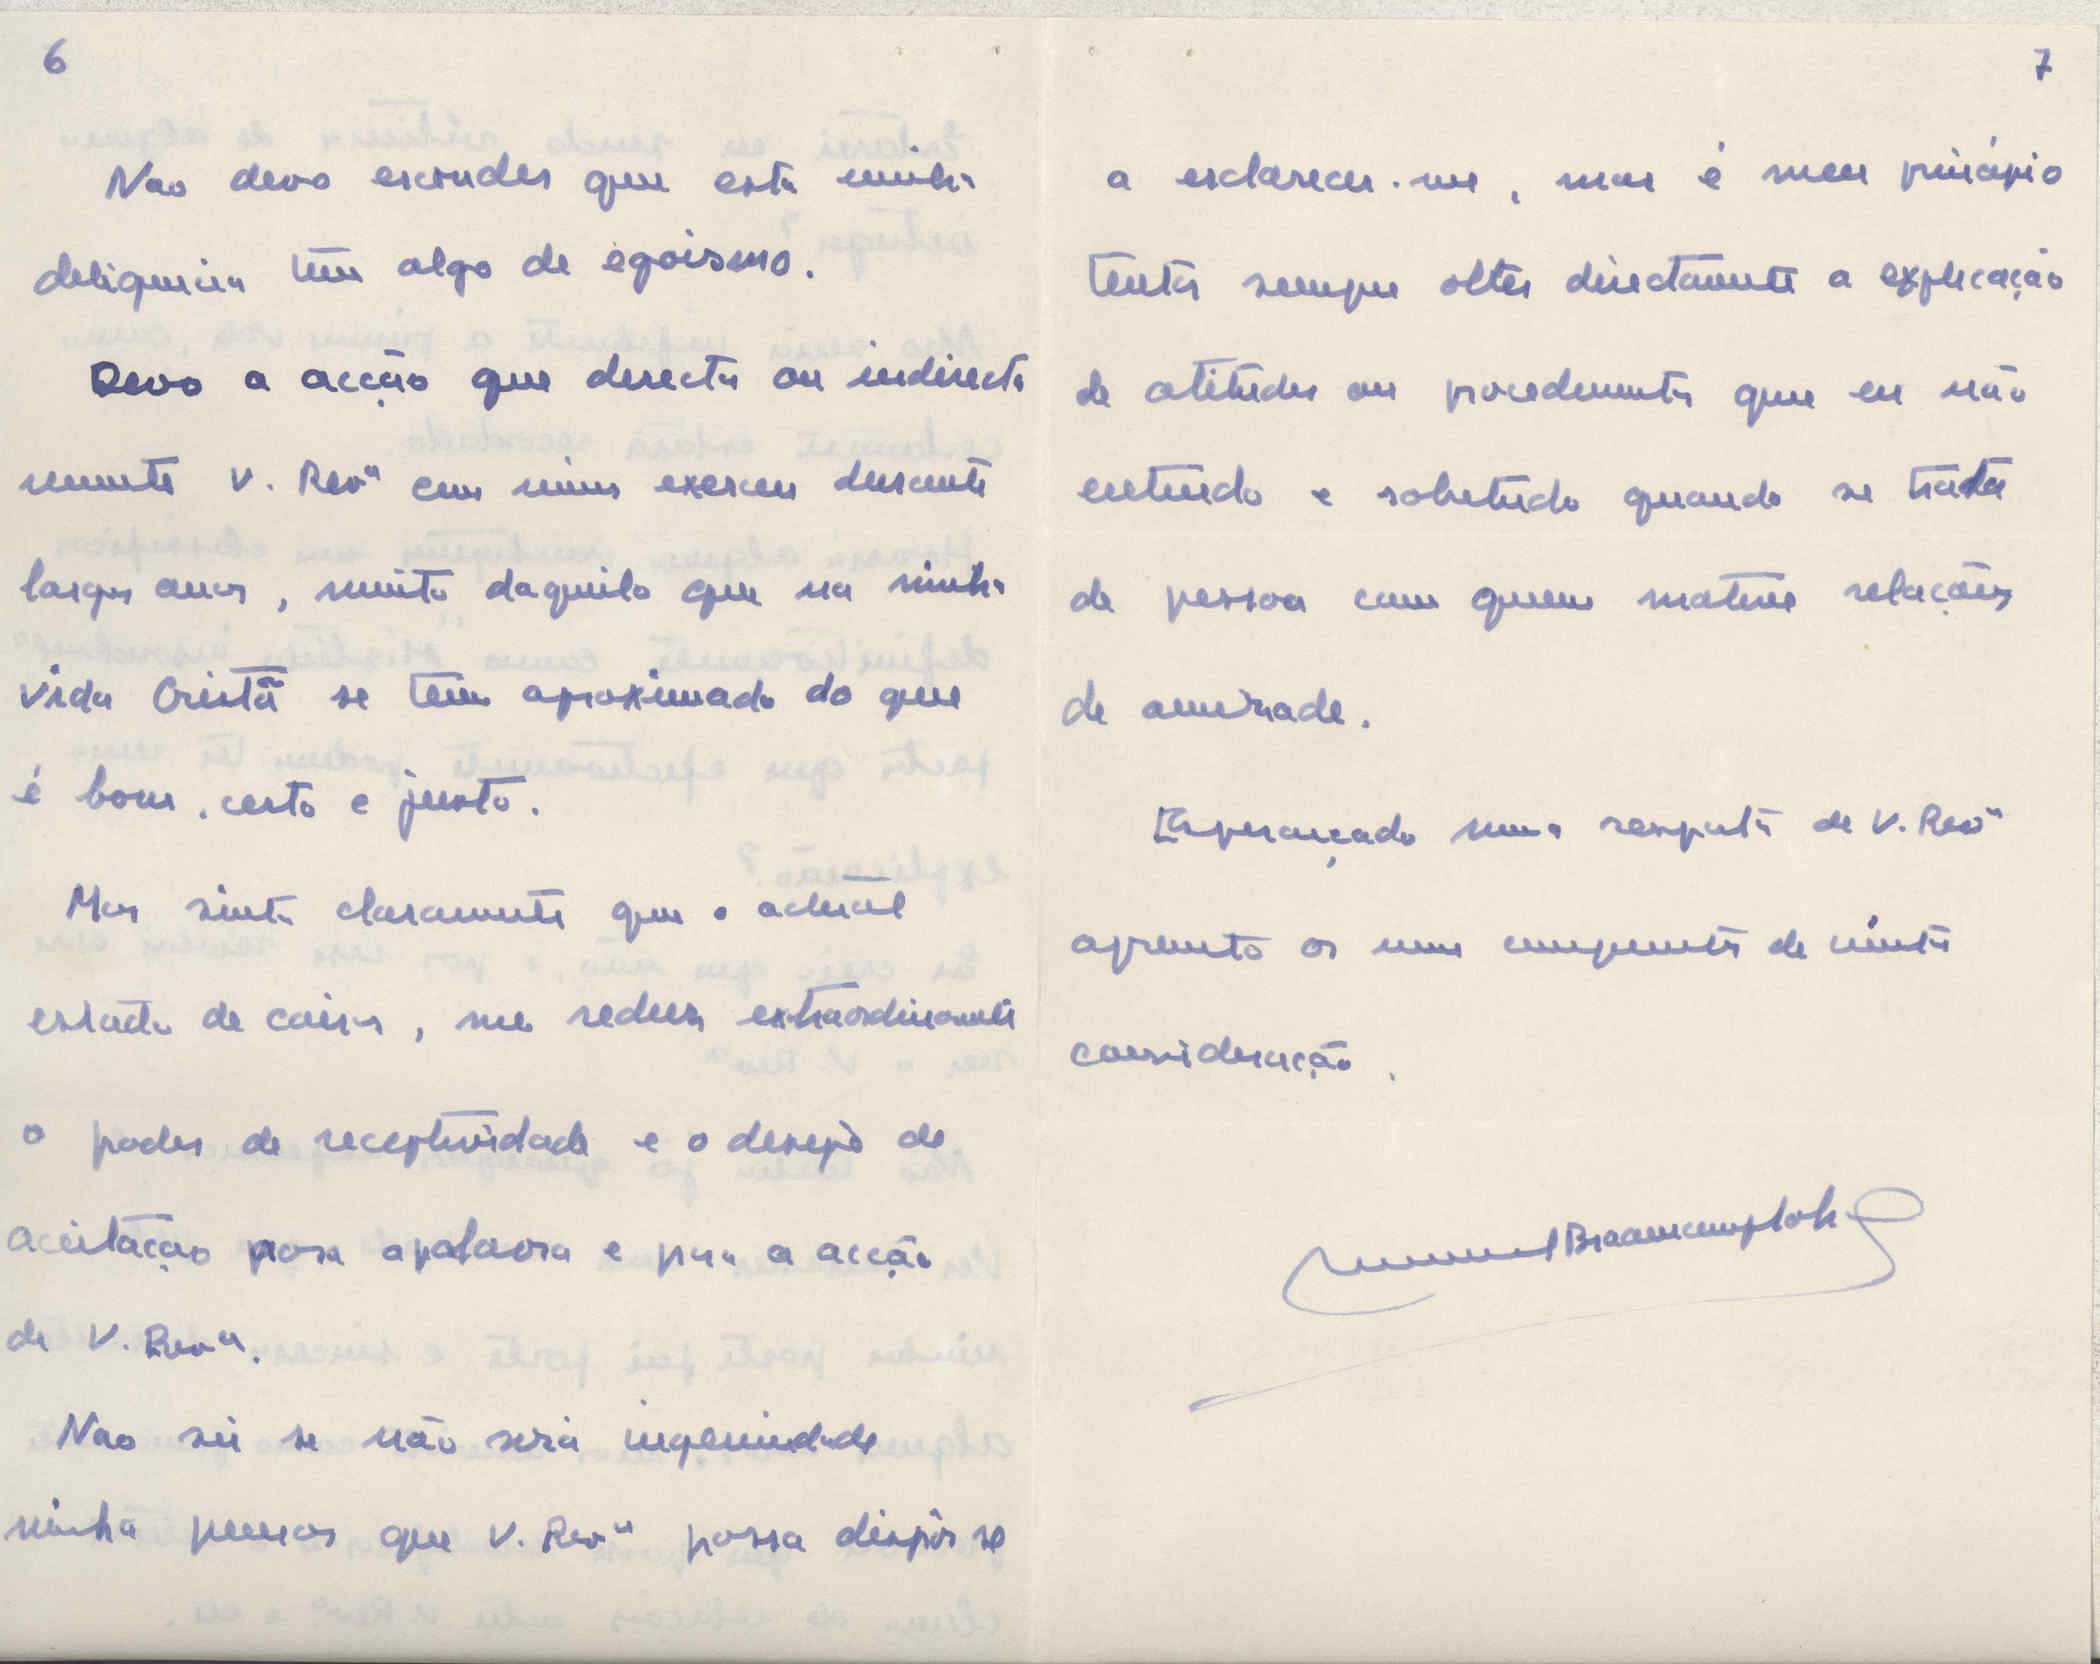 6
Nao devo esconder que esta minha
deligencia tem algo de egoismo.
Devo a acção que directa ou indirecta
mente V. Revª em mim exerceu durante
largos anos, muito daquilo que na minha
vida Cristã se tem aproximado do que
é bom, certo e justo.
Mas sinto claramente que o actual
estado de coisas, me reduz extraordinariamente
o poder de receptividade e o desejo de
aceitaçao para a palavra e para a acção
de V. Revª.
Nao sei se não será ingenuidade
minha pensar que V. Revª possa dispôr se
7
a esclarecer-me, mas é meu princípio
tentar sempre obter directamente a explicação
de atitudes ou procedimentos que eu não
entendo e sobretudo quando se trata
de pessoa com quem mantive relações
de amizade.
Esperançado numa resposta de V. Revª
apresento os meus cumprimentos de muita
consideração.